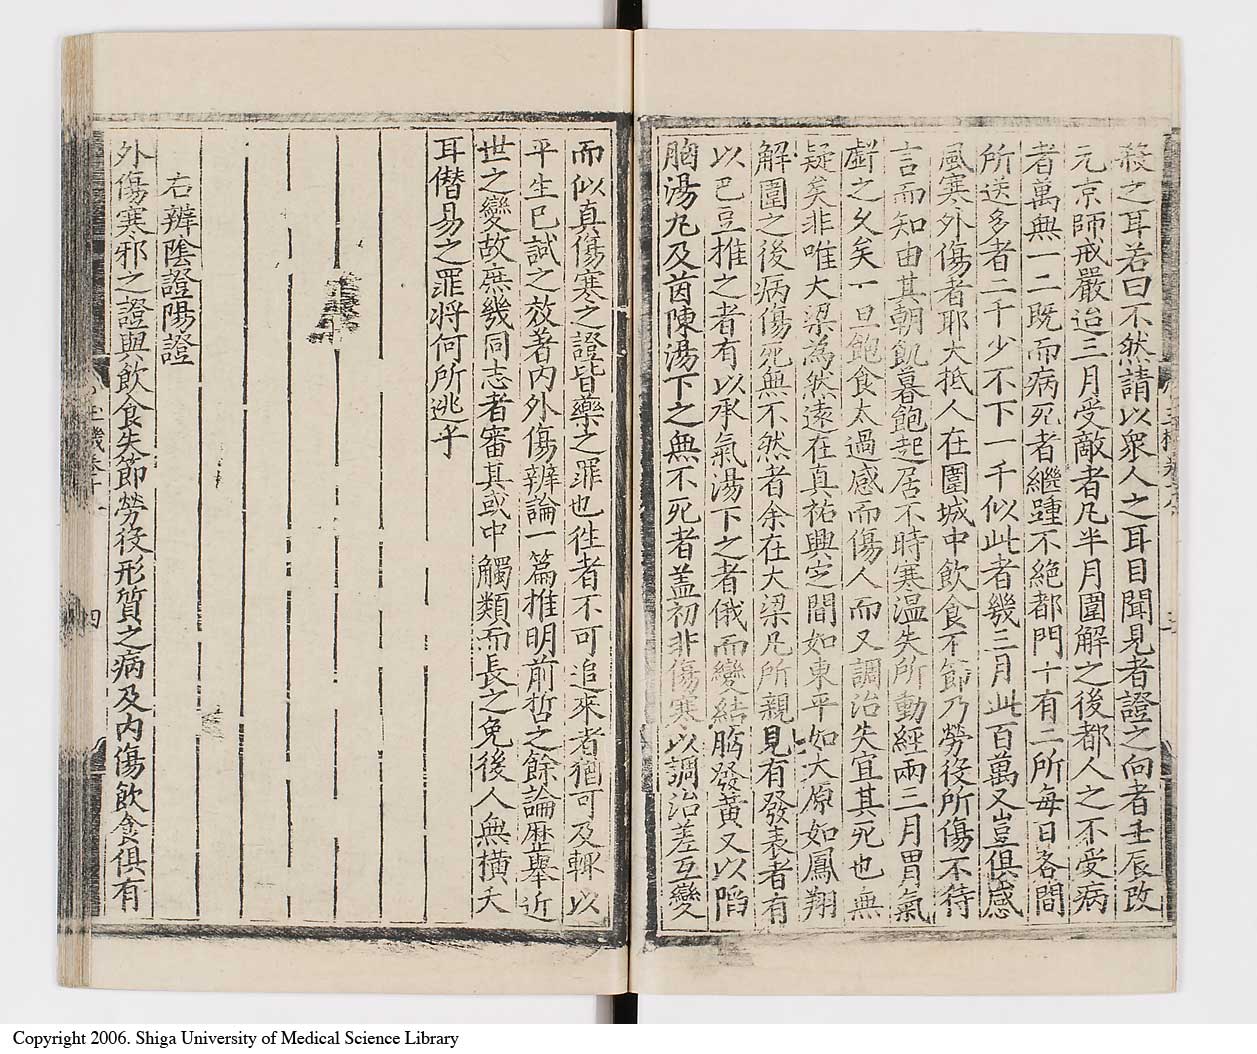 殺之耳若曰不然請以衆人之耳目聞見者證之向者壬辰改
元京師戒嚴迨三月受敵者凡半月圍解之後都人之不受病
者萬無一二既而病死者繼踵不絶都門十有二所每日各間
所送多者二千少不下一千似此者幾三月此百萬又豈俱感
風寒外傷者耶大抵人在圍城中飲食不節乃勞役所傷不待
言而知由其朝飢暮飽起居不時寒温失所動經兩三月胃氣
虧之久矣一旦飽食太過感而傷人而又調治失宜其死也無
疑矣非唯大梁為然遠在真祐興㝎間如東平如大原如鳳翔
解圍之後病傷死無不然者余在大梁凡所親見有發表者有
以巴豆推之者有以承氣湯下之者俄而變結胸發黃又以陷
胸湯丸及茵陳湯下之無不死者盖初非傷寒以調治差互變
而似真傷寒之證皆藥之罪也徃者不可追來者猶可及輒以
平生已試之效著内外傷辨論一篇推明前哲之餘論歷舉近
世之變故庶幾同志者審其或中觸類而長之免後人無橫夭
耳僭易之罪将何所逃乎
右辨陰證陽證
外傷寒邪之證與飲食失節勞役形質之病及内傷飲食俱有
四
Copyright 2006. Shiga University of Medical Science Library